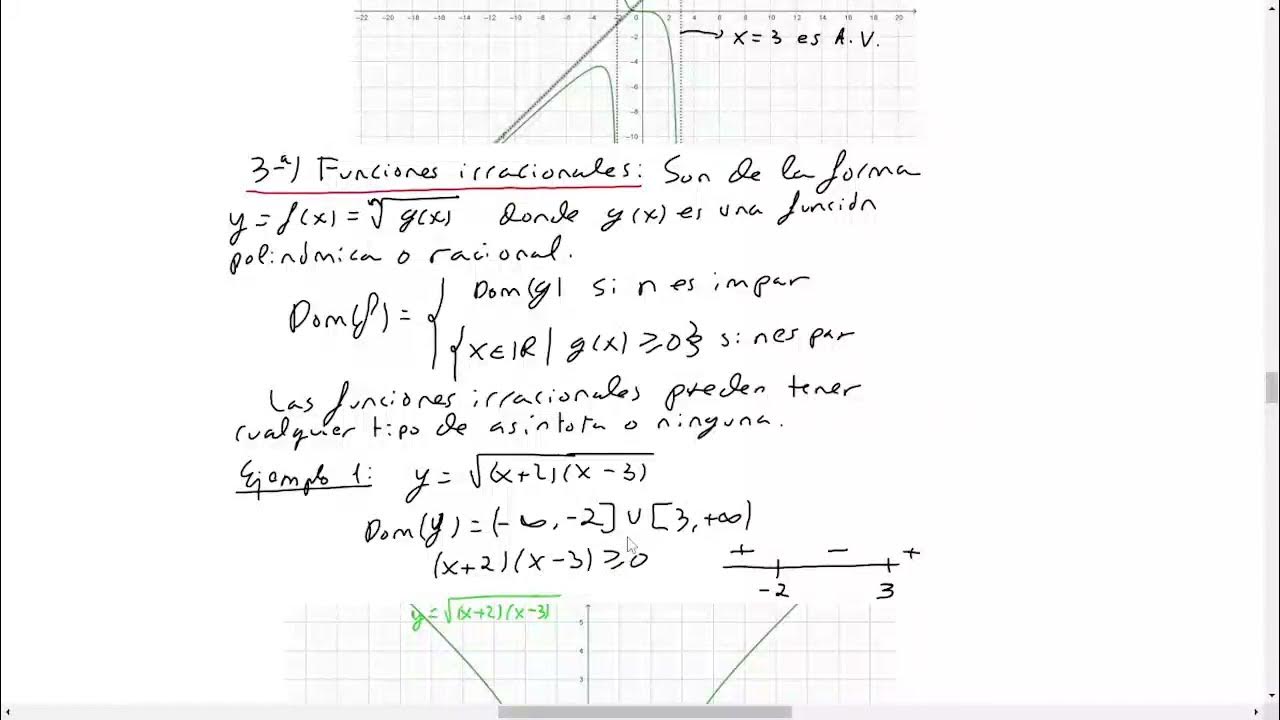 -22 -20 -18 -16 -14 -12 -10 -8 -6 -4 -2 0 2 4 6 8 10 12 14 16 18 20 22
-2
-4
-6
-8
-10
x = 3 es A.V.
3ª) Funciones irracionales: Son de la forma
y = f(x) = ⁿ√g(x) donde g(x) es una función
polinómica o racional.
Dom(f) = { Dom(g) si n es impar
{x∈ℝ | g(x) ≥ 0} si n es par
Las funciones irracionales pueden tener
cualquier tipo de asíntota o ninguna.
Ejemplo 1: y = √(x+2)(x-3)
Dom(y) = (-∞, -2] ∪ [3, +∞)
(x+2)(x-3) ≥ 0
+ - +
-2 3
y = √(x+2)(x-3)
5
4
3